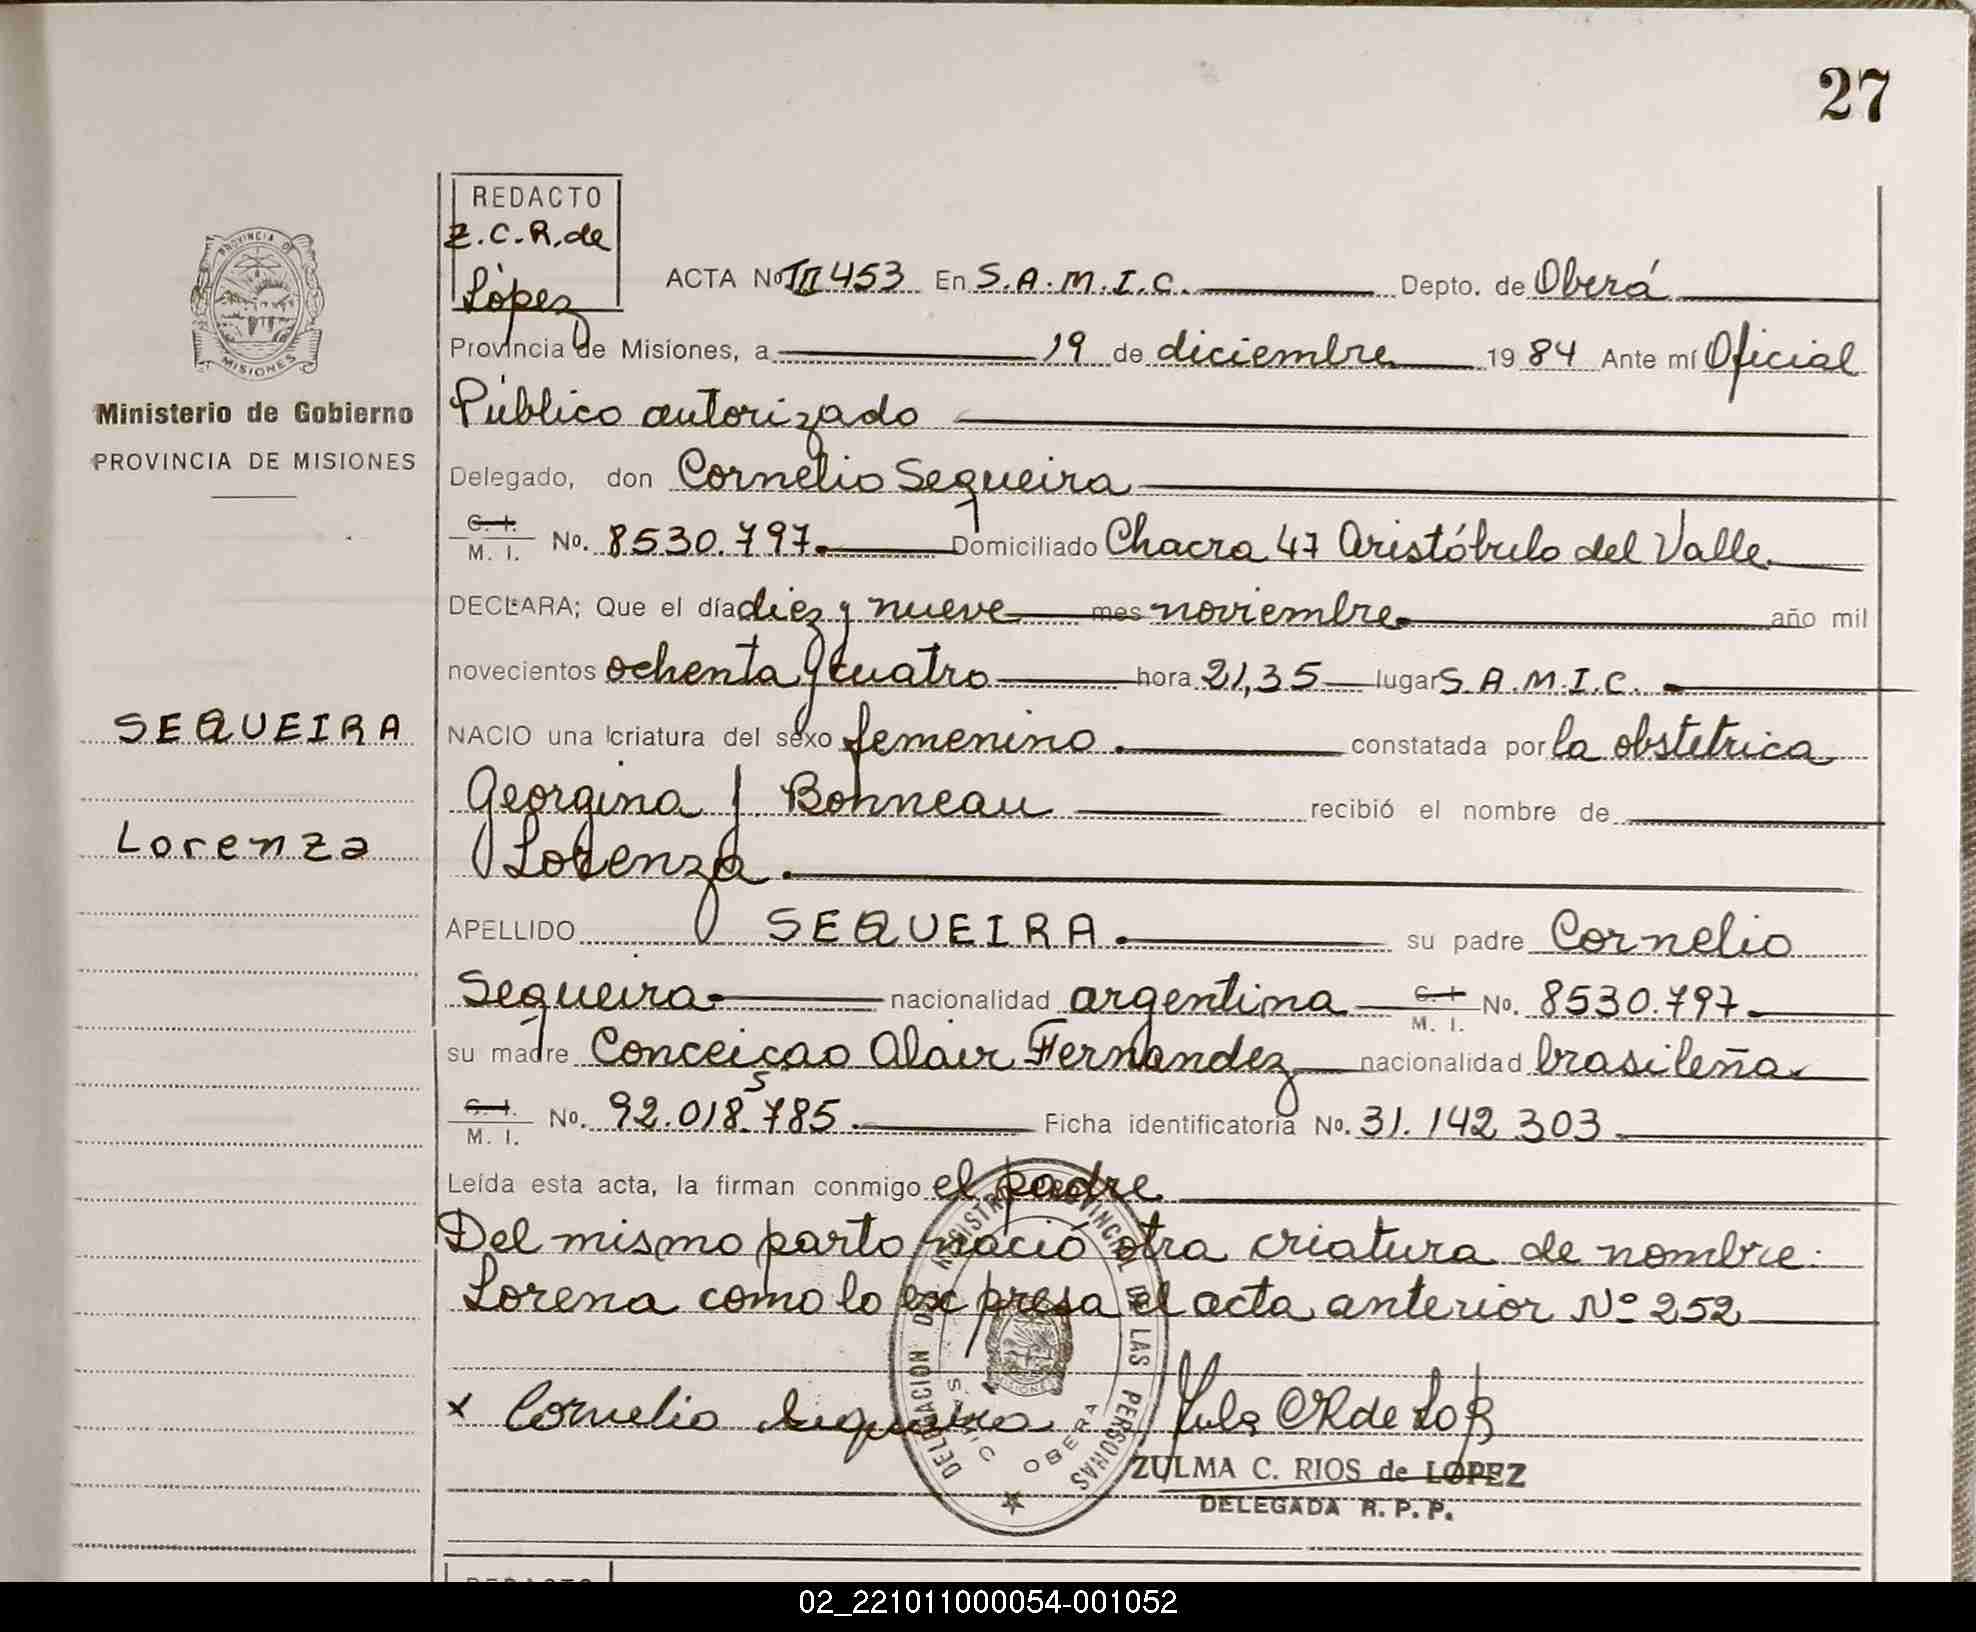 27
REDACTO
Z.C.R. de
López
PROVINCIA DE
MISIONES
Ministerio de Gobierno
PROVINCIA DE MISIONES
ACTA No. III 453 En S.A.M.I.C. Depto. de Oberá
Provincia de Misiones, a 19 de diciembre 1984 Ante mí Oficial
Público autorizado
Delegado, don Cornelio Sequeira
C. I.
M. I. No. 8530.797. Domiciliado Chacra 47 Aristóbulo del Valle
DECLARA; Que el día diez y nueve mes noviembre año mil
novecientos ochenta y cuatro hora 21,35 lugar S.A.M.I.C.
SEQUEIRA
NACIO una criatura del sexo femenino. constatada por la obstetrica
Georgina J. Bonneau recibió el nombre de
Lorenza
Lorenza.
APELLIDO SEQUEIRA. su padre Cornelio
Sequeira nacionalidad argentina C. I. No. 8530.797.
M. I.
su madre Conceiçao Alair Fernandez nacionalidad brasileña
5
C. I.
M. I. No. 92.018.785. Ficha identificatoria No. 31.142.303
Leída esta acta, la firman conmigo el padre.
Del mismo parto nació otra criatura de nombre:
Lorena como lo expresa el acta anterior Nº 252
DELEGACION DEL REGISTRO PROVINCIAL DE LAS PERSONAS
SAMIC OBERA
x Cornelio Sequeira
ZULMA C. RIOS de LOPEZ
DELEGADA R. P. P.
REDACTO
02_221011000054-001052